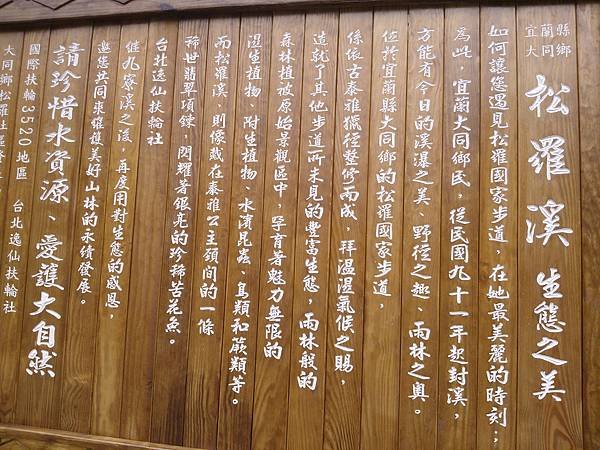 宜蘭縣
大同鄉
松羅溪生態之美
如何讓您遇見松羅國家步道，在她最美麗的時刻；
為此，宜蘭大同鄉民，從民國九十一年起封溪，
方能有今日的溪瀑之美、野徑之趣、雨林之奧。
位於宜蘭縣大同鄉的松羅國家步道，
係依古泰雅獵徑整修而成，拜溫濕氣候之賜，
造就了其他步道所未見的豐富生態，雨林般的
森林植被原始景觀區中，孕育著魅力無限的
濕生植物、附生植物、水濱昆蟲、鳥類和蕨類等。
而松羅溪，則像戴在泰雅公主頸間的一條
稀世翡翠項鍊，閃耀著銀亮的珍稀苦花魚。
台北逸仙扶輪社
繼九寮溪之後，再度用對生態的感恩，
邀您共同來維護美好山林的永續發展。
請珍惜水資源、愛護大自然
國際扶輪3520地區 台北逸仙扶輪社
大同鄉松羅社區發